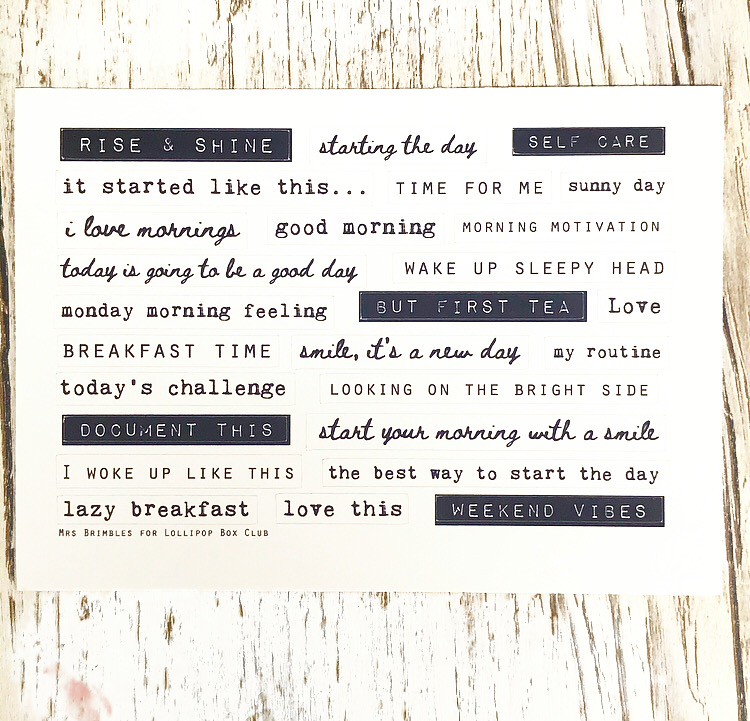 RISE & SHINE starting the day SELF CARE
it started like this... TIME FOR ME sunny day
i love mornings good morning MORNING MOTIVATION
today is going to be a good day WAKE UP SLEEPY HEAD
monday morning feeling BUT FIRST TEA Love
BREAKFAST TIME smile, it's a new day my routine
today's challenge LOOKING ON THE BRIGHT SIDE
DOCUMENT THIS start your morning with a smile
I WOKE UP LIKE THIS the best way to start the day
lazy breakfast love this WEEKEND VIBES
MRS BRIMBLES FOR LOLLIPOP BOX CLUB